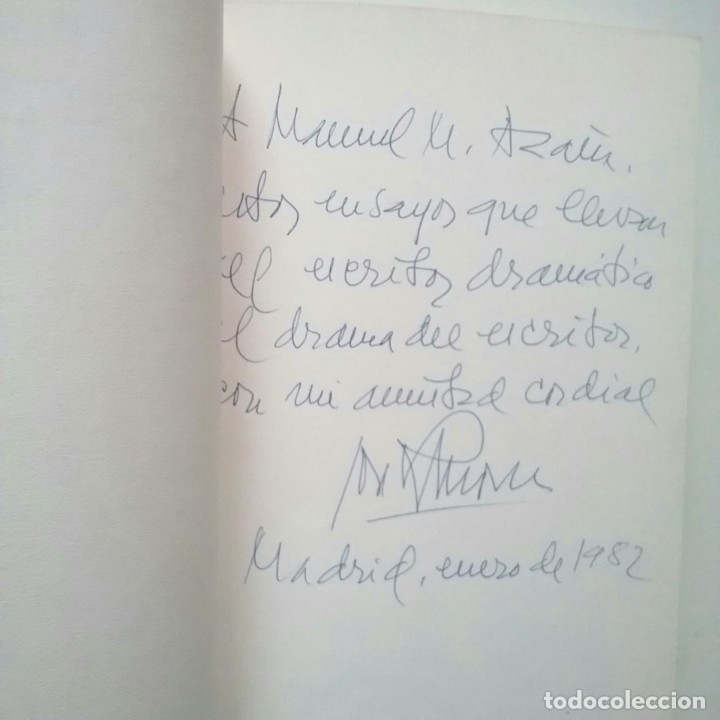 A Manuel M. Azaña.
estos ensayos que llevan
del escritor dramático
al drama del escritor,
con mi amistad cordial
Madrid, enero de 1982
todocoleccion